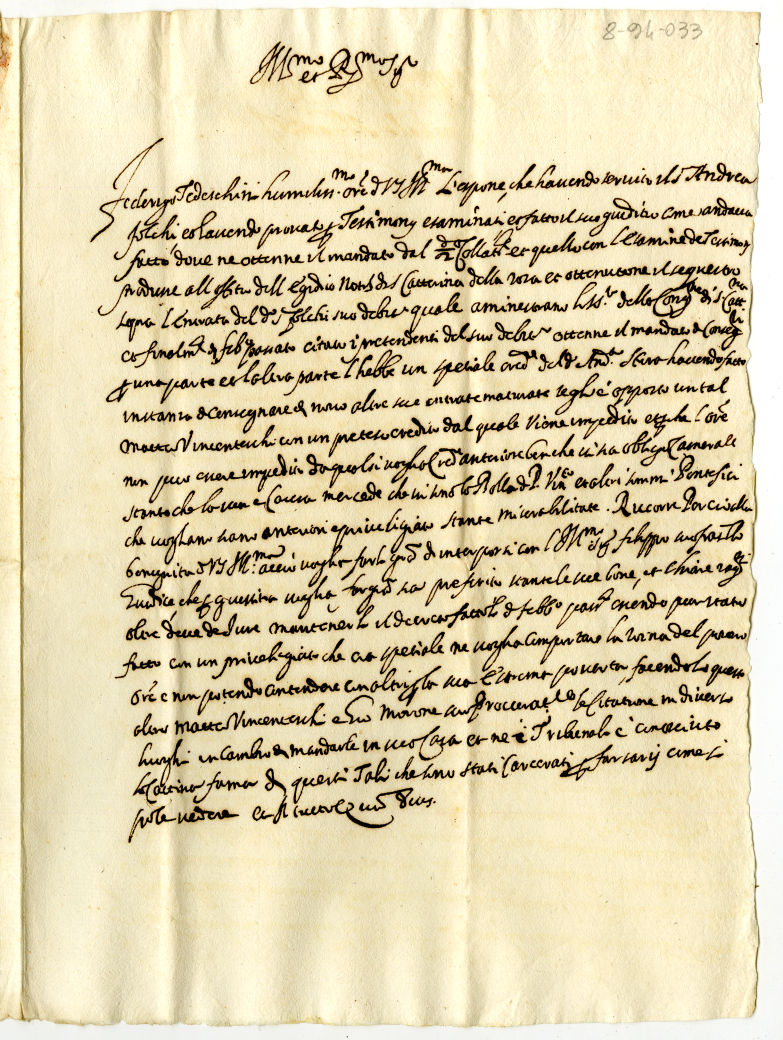 8-94-033
Ill.mo et R.mo Sig.r
Federigo Tedeschini humiliss.mo ore d VS Ill.ma L'espone, che havendo servito il S. Andrea
Folchi et havendo provato p Testimonij esaminati et fatto il suo giuditio come andava
fatto dove ne ottenne il mandato dal d.o Collat.le et quello con l'esamine de Testimonij
produrre all offitio dell Egidio Not.o di S. Catterina della rosa et ottenutone il sequestro
sopra l'entrata del d.o S. Folchi suo debit.e quale aministrano li SS.ri della Cong.ne di S. Catt.na
et finalm.te di feb.o passato citati i pretendenti del suo debit.e ottenne il mandato d Conseg.
p una parte et l'altra parte l'hebbe un spetiale cred.e del d. And.a havendo fatto
instanza d consegnare di novo altre sue entrate maturate segli è opposto un tal
Matteo Vincenteschi con un preteso credito dal quale viene impedito l'ore
non puo essere impedito da qualsi voglia Cred.e anteriore benche sia in oblig.e Camerale
stante che lo sua e Causa mercede che vi sino la Bolla d P. et altri sommi Pontefici
che vogliano siano anteriori e priveligiati stante miserabilitate. Ricorre Perciò alla
benignita d VS Ill.ma accio voglia farli gra.a di interporsi con l Ill.mo Filippo
Giudice, che p giustitia voglia far gra.a sia preferito stante le sue bone, et chiare rag.ni
oltre deve de Jure mantenerli il decreto fatto di febb.o pass.o essendo
fatto con un privelegiato che era spetiale ne voglia comportare la rovina del povero
ore e non potendo contendere con altri p la sua estrema poverta, facendolo questo
altro Matteo Vincenteschi e Gio Morone suo Proccurat.e le Citatione in diversi
luoghi in Cambio di mandarle in sua Casa et ne i Tribunale è conosciuto
la Cattiva fama di questi Tali che sono stati Carcerati p farsarij come si
pole vedere Et il tutto Quas Deus.